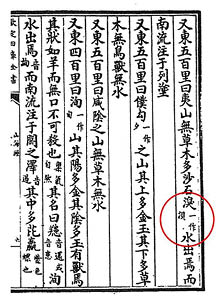 又東五百里曰夾山無草木多沙石湨一作浿水出焉而
南流注于列塗
又東五百里曰僕勾一作夕之山其上多金玉其下多草
木無鳥獸無水
又東五百里曰咸陰之山無草木無水
又東四百里曰洵一作旬山其陽多金其陰多玉有獸焉
其狀如羊而無口不可殺也稟氣自然其名曰䍺音還或音患洵
水出焉音詢而南流注于閼之澤音遏其中多芘蠃紫色螺也